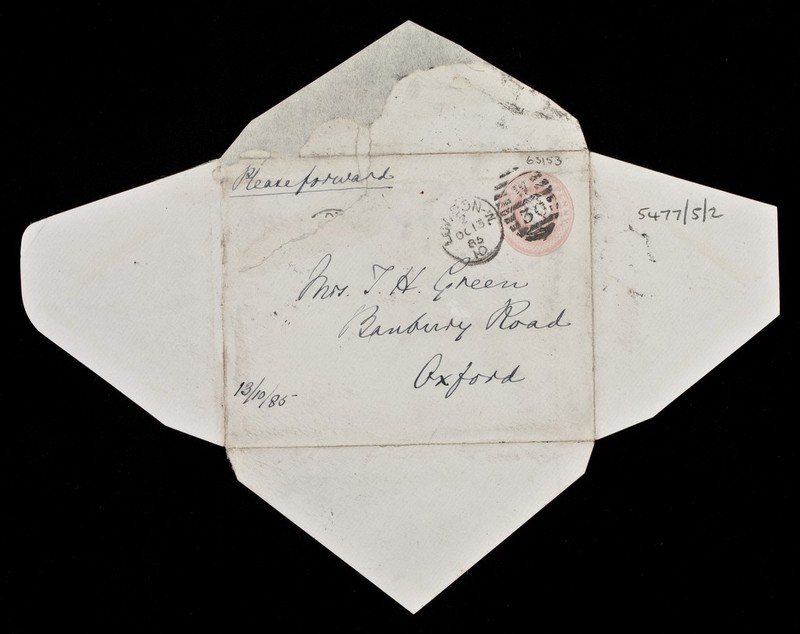 63153
Please forward
5477/5/2
LONDON·N
2
OC 13
85
10
30
Mrs. T. H. Green
Banbury Road
Oxford
13/10/85